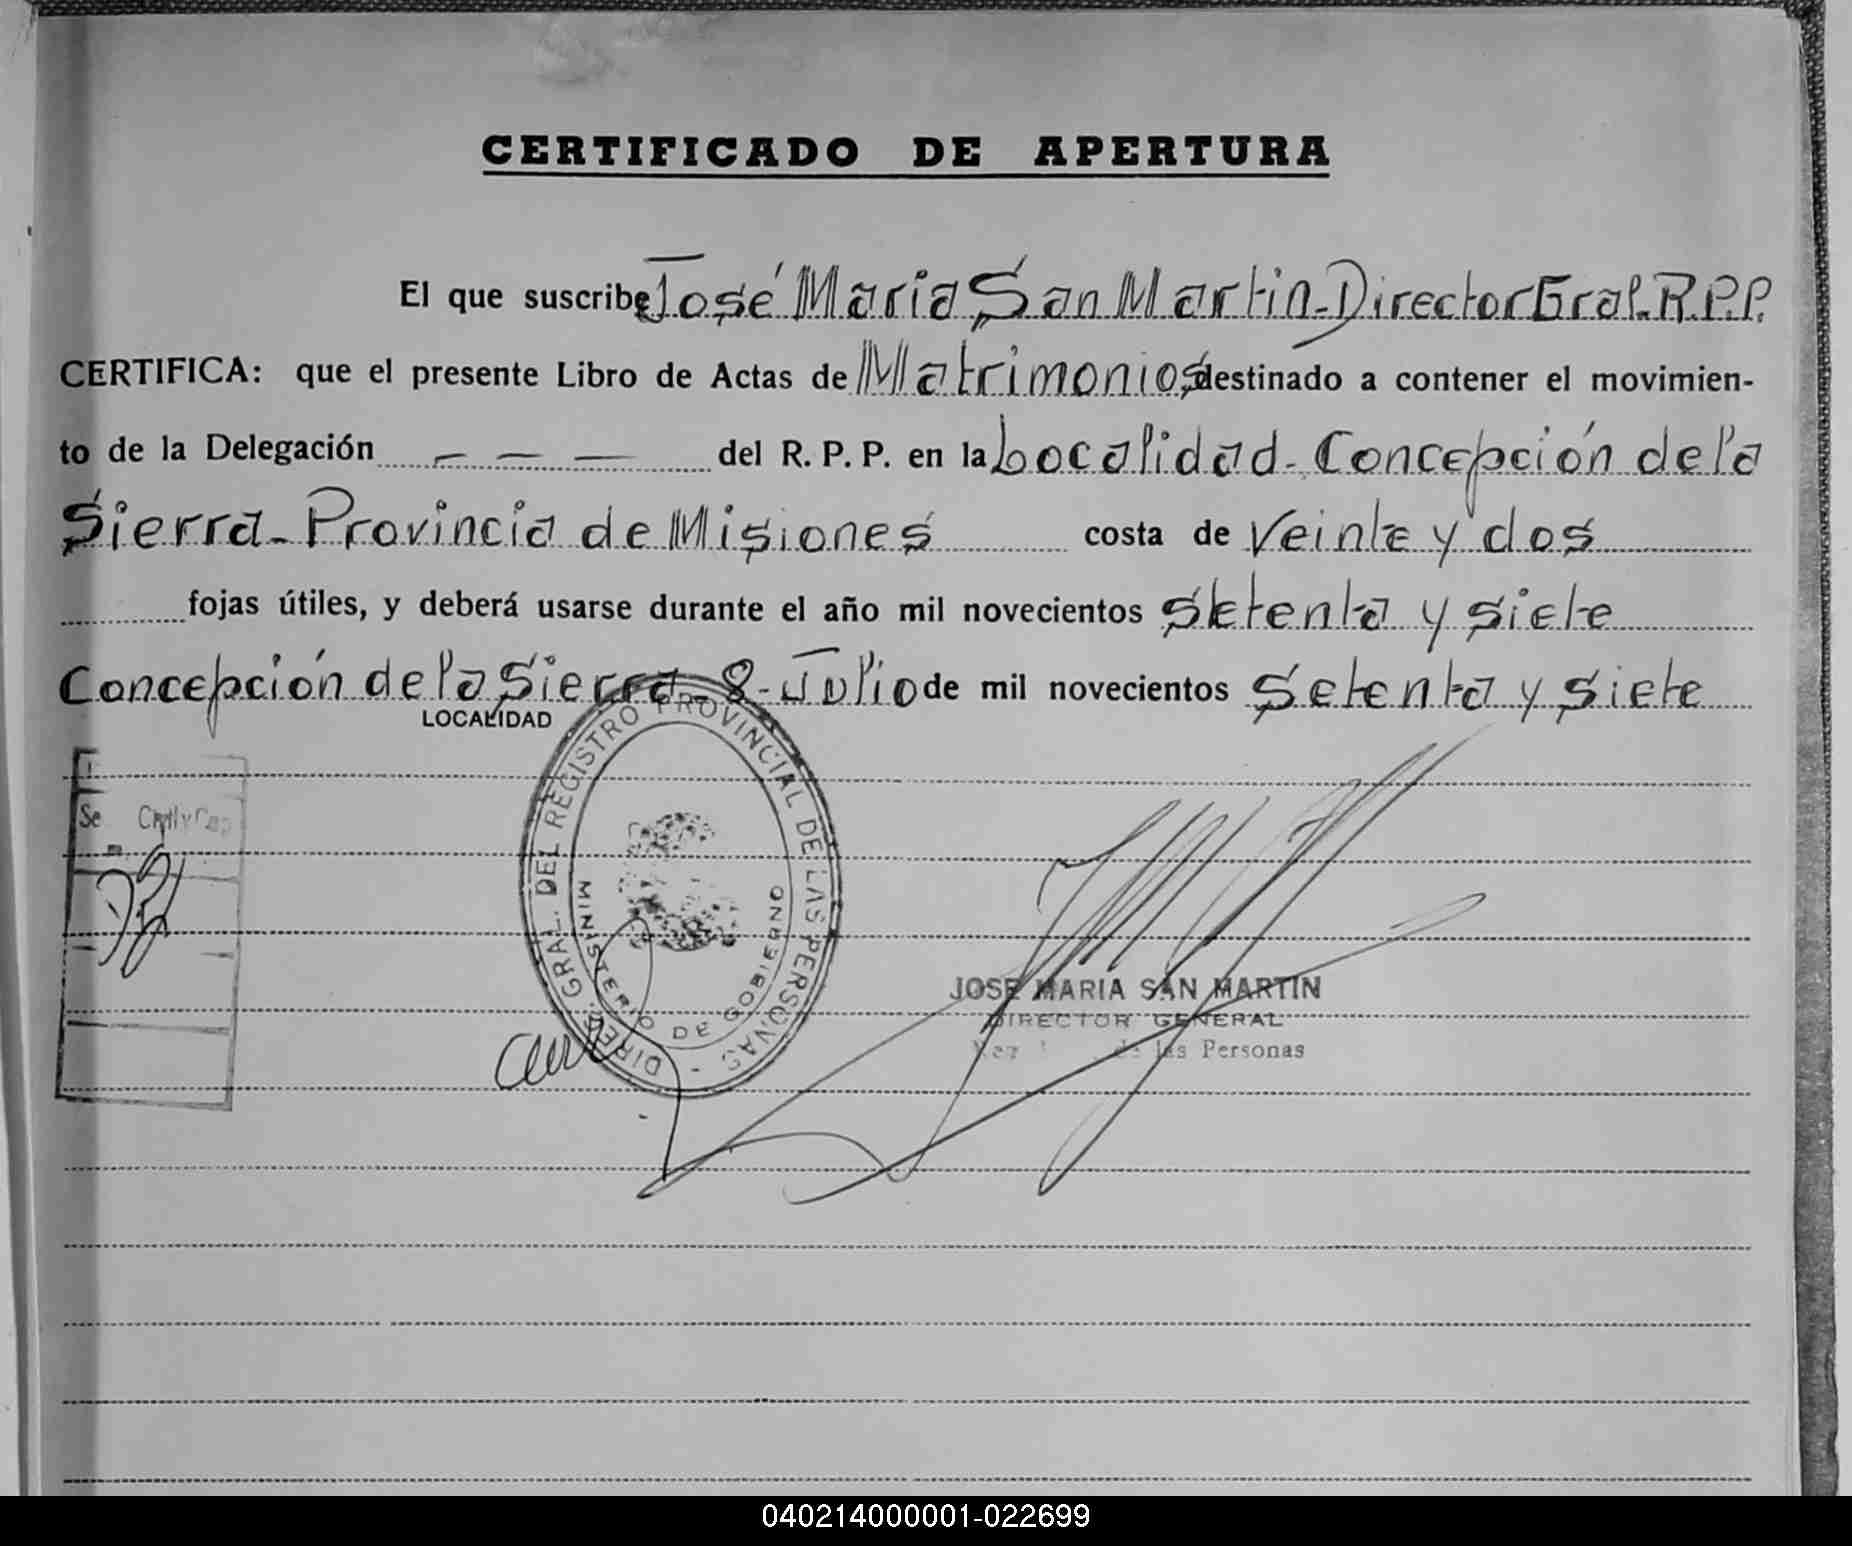 CERTIFICADO DE APERTURA
El que suscribe José Maria San Martin - Director Gral. R.P.P.
CERTIFICA: que el presente Libro de Actas de Matrimonios destinado a contener el movimien-
to de la Delegación — — — del R. P. P. en la Localidad - Concepción de la
Sierra - Provincia de Misiones costa de Veinte y dos
fojas útiles, y deberá usarse durante el año mil novecientos Setenta y siete
Concepción de la Sierra - 8 - Julio de mil novecientos Setenta y siete
LOCALIDAD
DIREC. GRAL. DEL REGISTRO PROVINCIAL DE LAS PERSONAS -
MINISTERIO DE GOBIERNO
JOSE MARIA SAN MARTIN
DIRECTOR GENERAL
de las Personas
040214000001-022699